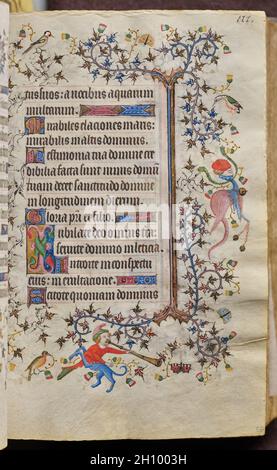 111.
suos: a vocibus aquarum
multarum.
Mirabiles elaciones maris:
mirabilis in altis dominus.
Testimonia tua
credibilia facta sunt nimis domum
tuam decet sanctitudo domine
in longitudinem dierum.
Gloria pri et filio.
Iubilate deo omnis terra:
servite domino in leticia.
Introite in conspectu
eius: in exultacione.
Scitote quoniam dominus
alamy
Image ID: 2H1003H
www.alamy.com